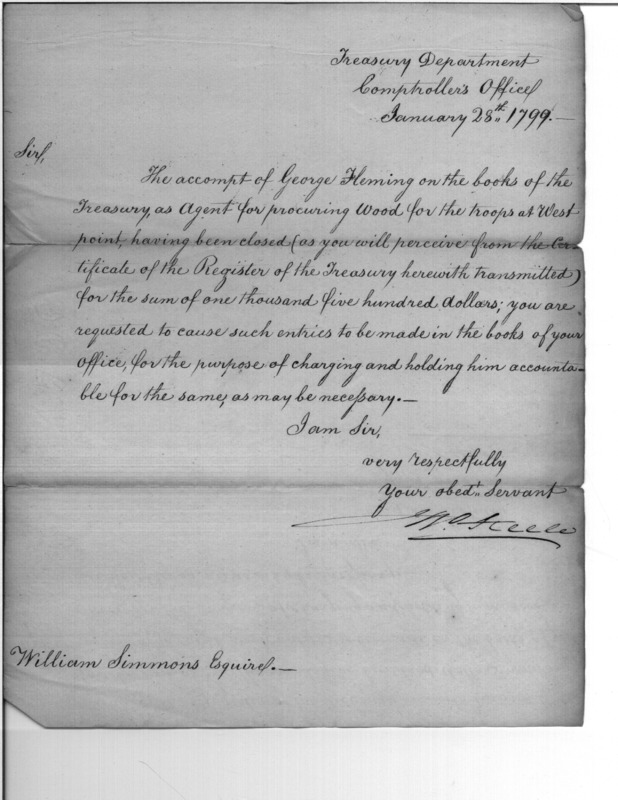 Treasury Department
Comptroller's Office
January 28th 1799.—
Sir,
The accompt of George Fleming on the books of the
Treasury, as Agent for procuring Wood for the troops at West
point, having been closed (as you will perceive from the Cer-
tificate of the Register of the Treasury herewith transmitted)
for the sum of one thousand five hundred dollars; you are
requested to cause such entries to be made in the books of your
office, for the purpose of charging and holding him accounta-
ble for the same, as may be necessary.—
I am Sir,
very respectfully
Your obedt. Servant
Jno. Steele
William Simmons Esquire.—